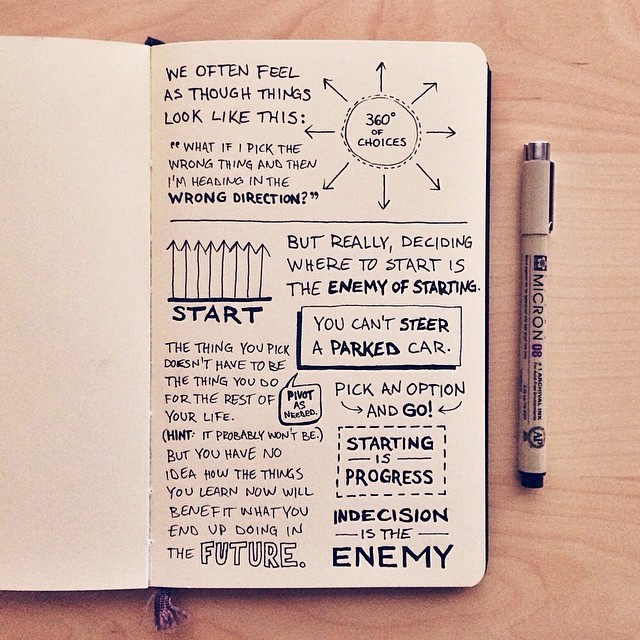 WE OFTEN FEEL
AS THOUGH THINGS
LOOK LIKE THIS:
"WHAT IF I PICK THE
WRONG THING AND THEN
I'M HEADING IN THE
WRONG DIRECTION?"
360°
OF
CHOICES
START
BUT REALLY, DECIDING
WHERE TO START IS
THE ENEMY OF STARTING.
YOU CAN'T STEER
A PARKED CAR.
THE THING YOU PICK
DOESN'T HAVE TO BE
THE THING YOU DO
FOR THE REST OF
YOUR LIFE.
(HINT: IT PROBABLY WON'T BE.)
BUT YOU HAVE NO
IDEA HOW THE THINGS
YOU LEARN NOW WILL
BENEFIT WHAT YOU
END UP DOING IN
THE FUTURE.
PIVOT
AS
NEEDED.
PICK AN OPTION
AND GO!
STARTING
IS
PROGRESS
INDECISION
IS THE
ENEMY
MICRON 08
#1 ARCHIVAL INK
AP